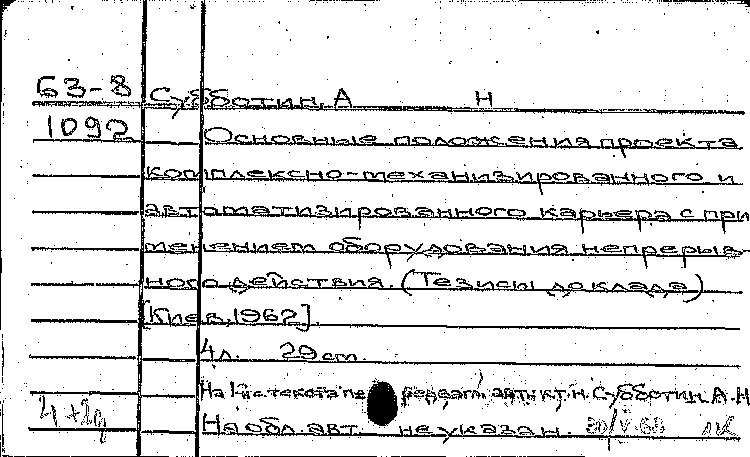 63-8 Субботин, А Н
1092 Основные положения проекта
комплексно-механизированного и
автоматизированного карьера с при
менением оборудования непрерыв-
ного действия. (Тезисы доклада)
[Киев, 1962].
4 л. 29 ст.
На 1-й с. текста пе ред загл. авт.: к.т.н. Субботин А.Н
На обл. авт. не указан. 30/V-68